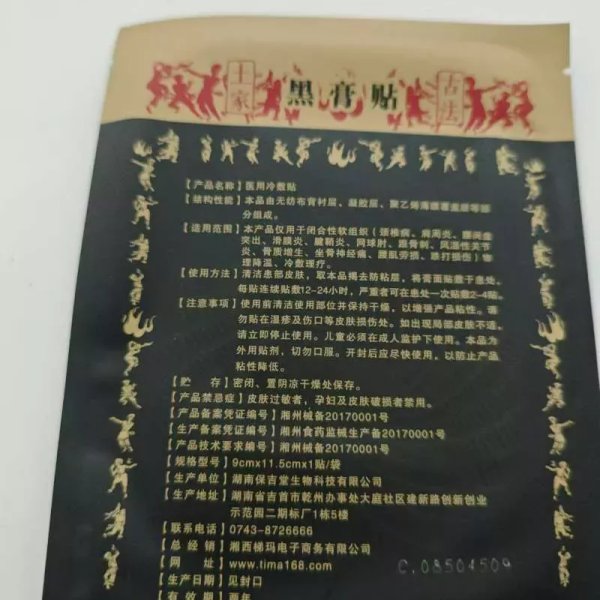 土家 黑膏贴 古法
【产品名称】医用冷敷贴
【结构性能】本品由无纺布背衬层、凝胶层、聚乙烯薄膜覆盖层等部
分组成。
【适用范围】本产品仅用于闭合性软组织（颈椎病、肩周炎、腰间盘
突出、滑膜炎、腱鞘炎、网球肘、跟骨刺、风湿性关节
炎、骨质增生、坐骨神经痛、腰肌劳损、跌打损伤）物
理降温、冷敷理疗。
【使用方法】清洁患部皮肤，取本品揭去防粘层，将膏面贴敷于患处，
每贴连续贴敷12-24小时，严重者可在患处一次贴敷2-4贴。
【注意事项】使用前清洁使用部位并保持干燥，以增强产品粘性。请
勿贴在湿疹及伤口等皮肤损伤处。如出现局部皮肤不适，
请立即停止使用。儿童必须在成人监护下使用。本品为
外用贴剂，切勿口服。开封后应尽快使用，以防止产品
粘性降低。
【贮 存】密闭、置阴凉干燥处保存。
【产品禁忌症】皮肤过敏者，孕妇及皮肤破损者禁用。
【产品备案凭证编号】湘州械备20170001号
【生产备案凭证编号】湘州食药监械生产备20170001号
【产品技术要求编号】湘州械备20170001号
【规格型号】9cmx11.5cmx1贴/袋
【生产单位】湖南保吉堂生物科技有限公司
【生产地址】湖南省吉首市乾州办事处大庭社区建新路创新创业
示范园二期标厂1栋5楼
【联系电话】0743-8726666
【总 经 销】湘西梯玛电子商务有限公司
【网 址】www.tima168.com
C.08504509
【生产日期】见封口
【有 效 期】两年